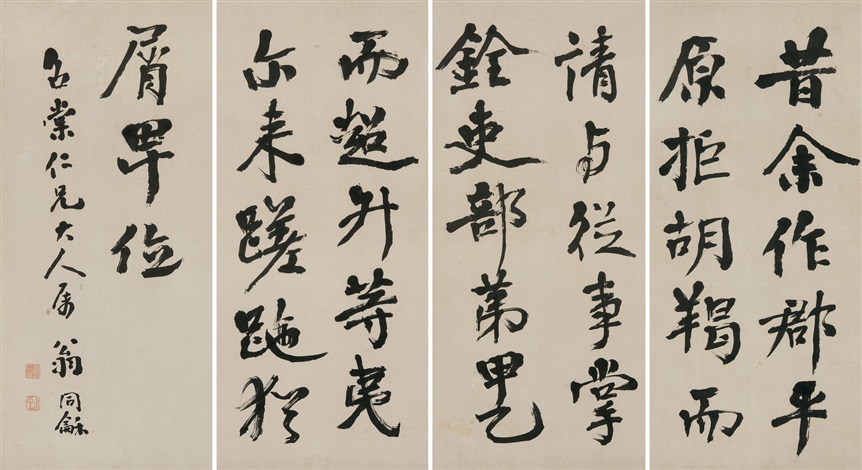 昔余作郡平
原拒胡羯而
請与從事掌
銓吏部第甲乙
而超升等夷
尔来蹉跎猶
屑卑位
名棠仁兄大人属 翁同龢